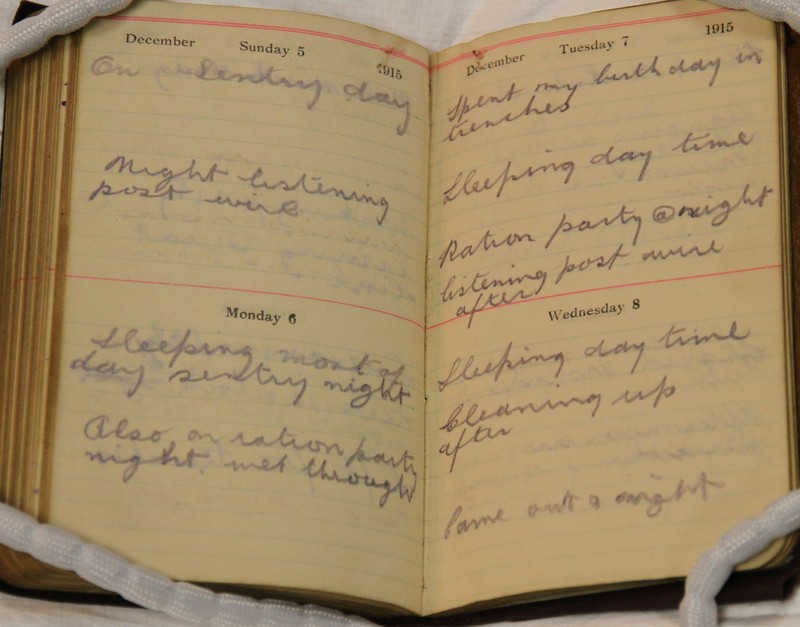 December Sunday 5 1915
On Sentry day
Night listening
post wire
Monday 6
Sleeping most of
day sentry night
Also on ration party
night. wet through
December Tuesday 7 1915
Spent my birthday in
trenches
Sleeping day time
Ration party @ night
listening post wire
after
Wednesday 8
Sleeping day time
Cleaning up
after
Came out @ night